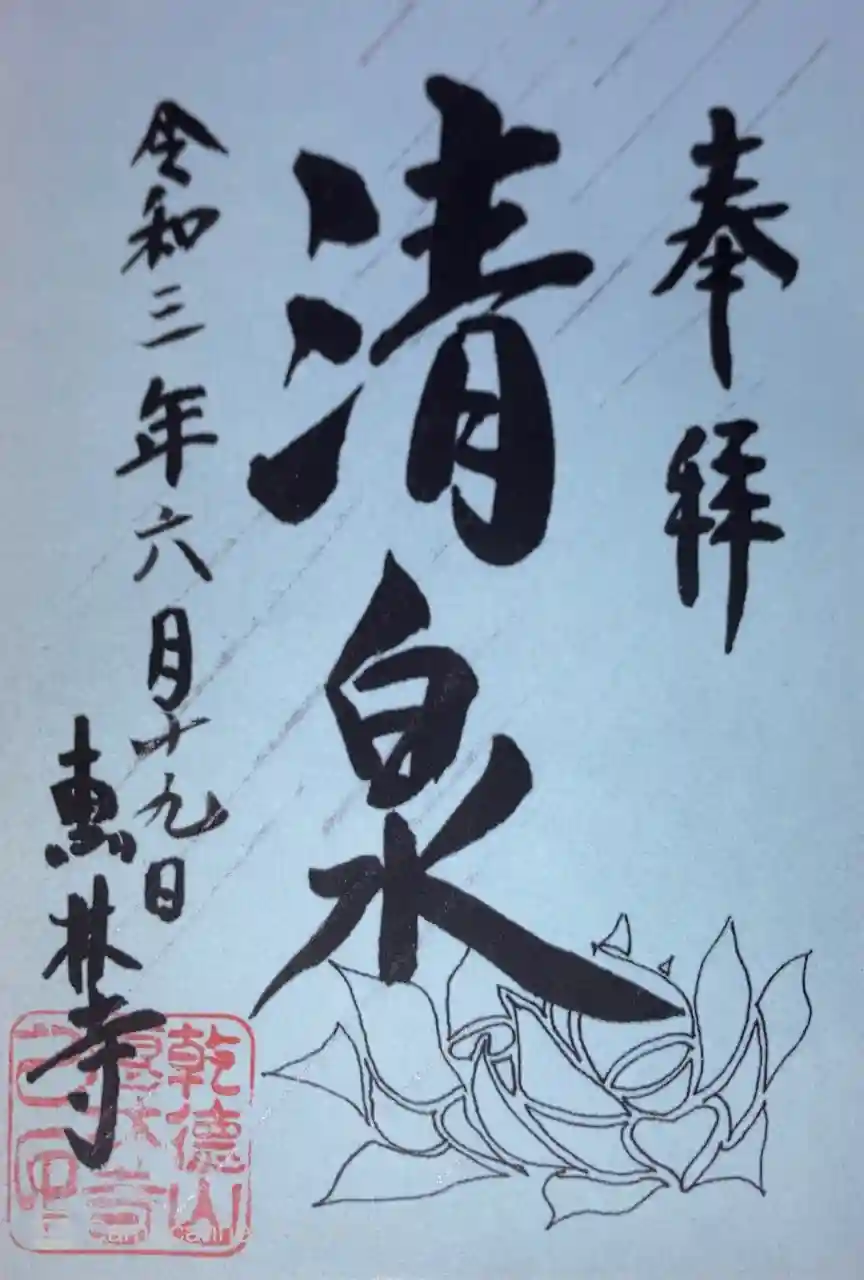 奉拝
清泉
令和三年六月十九日
惠林寺
乾徳山